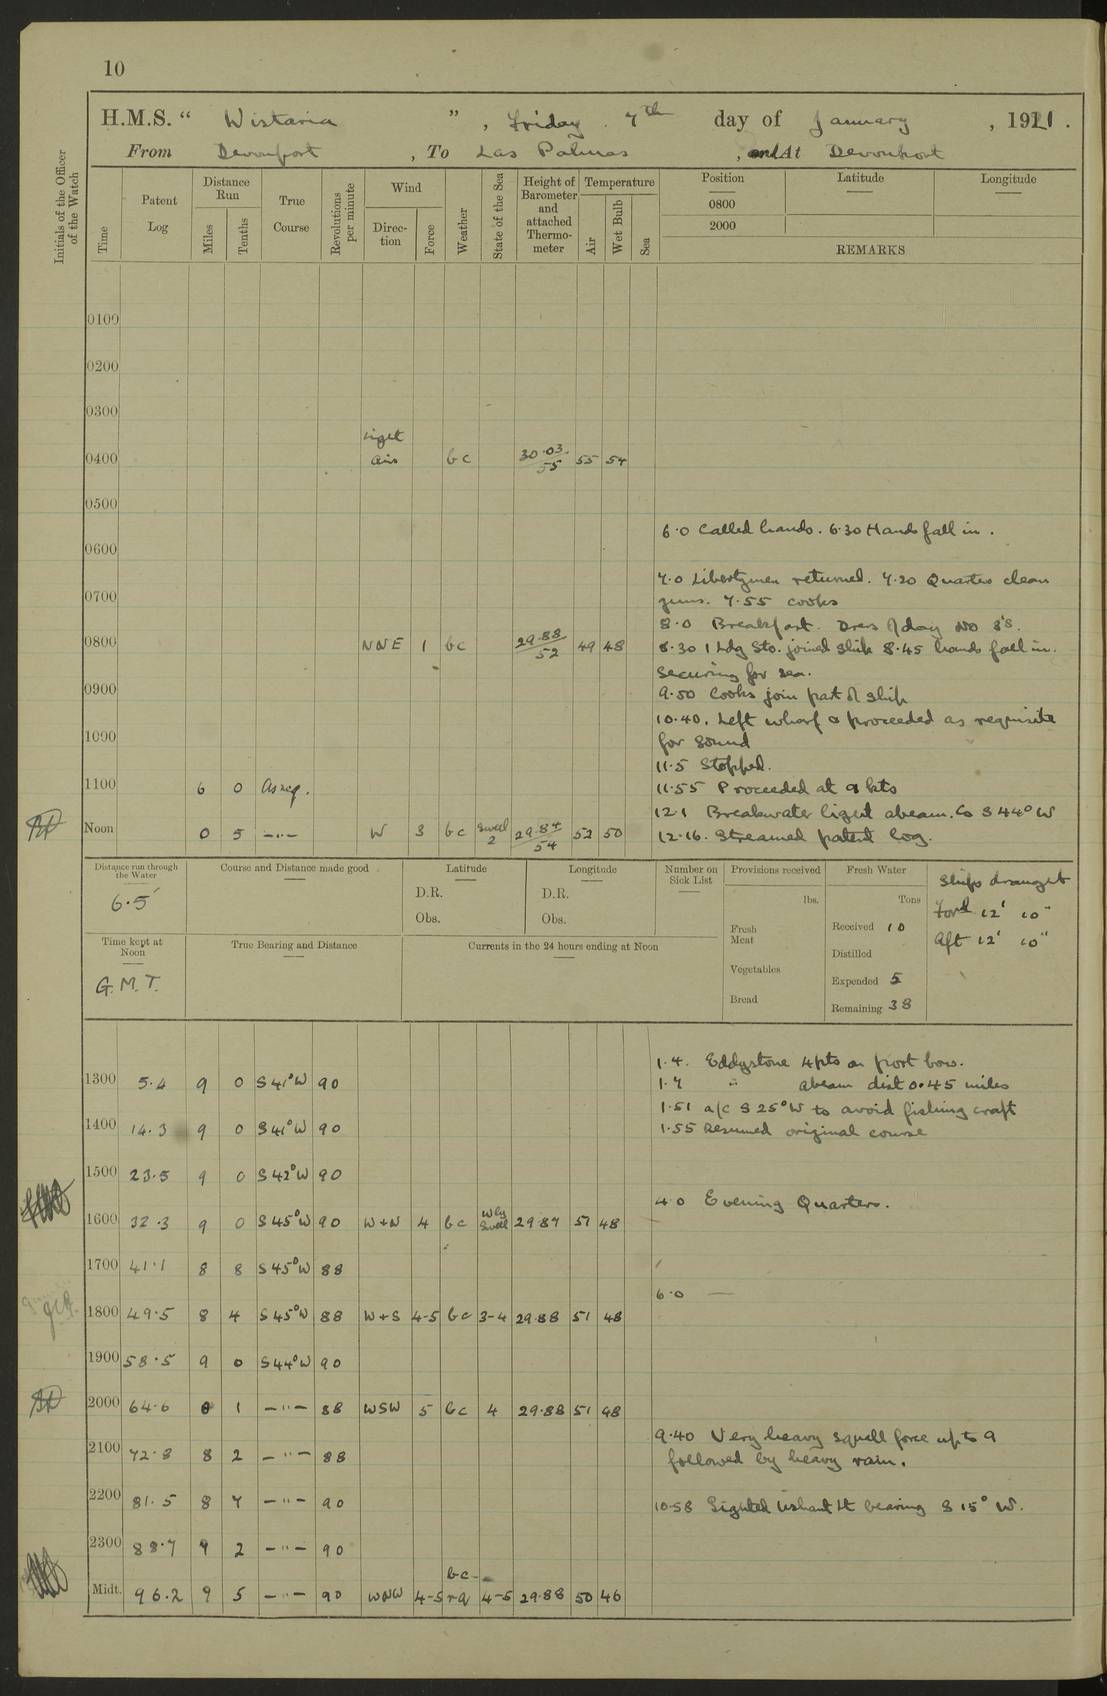 10
H.M.S. “ Wistaria ” , Friday 7th day of January , 1921 .
From Devonport , To Las Palmas , and At Devonport
Initials of the Officer of the Watch
Time
Patent Log
Distance Run
Miles
Tenths
True Course
Revolutions per minute
Wind
Direction
Force
Weather
State of the Sea
Height of Barometer and attached Thermometer
Temperature
Air
Wet Bulb
Sea
Position Latitude Longitude
0800
2000
REMARKS
0100
0200
0300
Light
0400 airs bc 30.03/55 55 54
0500
6.0 Called hands. 6.30 Hands fall in.
0600
7.0 Libertymen returned. 7.20 Quarters clean
0700 guns. 7.55 cooks
8.0 Breakfast. Dress of day No 3's.
0800 NNE 1 bc 29.88/52 49 48 8.30 1 Ldg Sto. joined ship 8.45 hands fall in.
securing for sea.
0900 9.50 Cooks join part of ship
10.40. Left wharf & proceeded as requisite
1000 for Sound
11.5 Stopped.
1100 6 0 As req. 11.55 Proceeded at 9 kts
12.1 Breakwater light abeam. Co S 44° W
Noon 0 5 —"— W 3 bc Swell 2 29.84/54 52 50 12.16. Streamed patent log.
Distance run through the Water
6.5
Course and Distance made good
Latitude
D.R.
Obs.
Longitude
D.R.
Obs.
Number on Sick List
Provisions received
lbs.
Fresh Meat
Vegetables
Bread
Fresh Water
Tons
Received 10
Distilled
Expended 5
Remaining 38
Ships draught
Ford 12' 10"
Aft 12' 10"
Time kept at Noon
G.M.T.
True Bearing and Distance
Currents in the 24 hours ending at Noon
1.4. Eddystone 4pts on port bow.
1300 5.4 9 0 S 41° W 90 1.7 " abeam dist 0.45 miles
1.51 a/c S 25° W to avoid fishing craft
1400 14.3 9 0 S 41° W 90 1.55 Resumed original course
1500 23.5 9 0 S 42° W 90
4.0 Evening Quarters.
1600 32.3 9 0 S 45° W 90 W+N 4 bc Wly Swell 29.87 51 48
1700 41.1 8 8 S 45° W 88
6.0 —
1800 49.5 8 4 S 45° W 88 W+S 4-5 bc 3-4 29.88 51 48
1900 58.5 9 0 S 44° W 90
2000 64.6 1 —"— 88 WSW 5 bc 4 29.88 51 48
9.40 Very heavy squall force up to 9
2100 72.8 8 2 —"— 88 followed by heavy rain.
2200 81.5 8 7 —"— 90 10.58 Sighted Ushant Lt bearing S 15° W.
2300 88.7 2 —"— 90
bc-
Midt. 96.2 9 5 —"— 90 WNW 4-5 rq 4-5 29.88 50 46